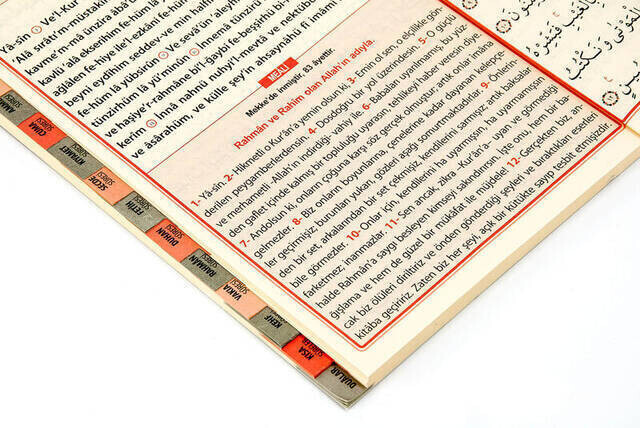 Yâ-sîn ① Ve'l-Kur
'Alâ sırâti'm-müstakîm
kavme'm-mâ ünzira âbâ
kavlü 'alâ ekserihim fe-hüm
ağlâlen fe-hiye ile'l-ezkâni fe-hüm
beyni eydîhim seddev-ve min halfi
fe-hüm lâ yübsirûn Ve sevâün 'aleyhi
tünzirhüm lâ yü'minûn İnnemâ tünziru
ve haşiye'r-rahmâne bi'l-ğaybi fe-beşşirhü bi
kerim İnnâ nahnü nuhyi'l-mevtâ ve nektübü
ve âsârahüm, ve külle şey'in ahsaynâhü fî imâmi
MEALİ
Mekke'de inmiştir. 83 âyettir.
Rahmân ve Rahîm olan Allah'ın adıyla.
1- Yâ-sîn. 2- Hikmetli Kur'ân'a yemin olsun ki, 3- emin ol sen, o elçilikle gön-
derilen peygamberlerdensin. 4- Dosdoğru bir yol üzerindesin. 5- O güçlü
ve merhametli -Allah'ın indirdiği- vahiy ile. 6- Babaları uyarılmamış, bu yüz-
den gaflet içinde kalmış bir topluluğu uyarasın, tehlikeyi haber veresin diye.
7- Andolsun ki, onların çoğuna karşı söz gerçek olmuştur; artık onlar imâna
gelmezler. 8- Biz onların boyunlarına, çenelerine kadar dayanan kelepçe-
ler geçirmişiz; burunları yukarı, gözleri aşağı somurtmaktadırlar. 9- Önlerin-
den bir set, arkalarından bir set çekmişiz, kendilerini sarmışız; artık baksalar
bile görmezler. 10- Onlar için, kendilerini ha uyarmışsın, ha uyarmamışsın
farketmez; inanmazlar. 11- Sen ancak, zikra -Kur'ân'a- uyan ve görmediği
halde Rahmân'a saygı besleyen kimseyi sakındırırsın. İşte onu, hem bir ba-
ğışlama ve hem de güzel bir mükâfat ile müjdele. 12- Gerçekten biz an-
cak biz ölüleri diriltiriz ve önden gönderdiği şeyleri ve bıraktıkları eserleri
kitaba geçiririz. Zaten biz her şeyi, açık bir kütükte sayıp tesbit etmişizdir.
AMME
CUMA SÛRESİ
KIYAMET SÛRESİ
SECDE SÛRESİ
FETİH SÛRESİ
DUHAN SÛRESİ
RAHMÂN SÛRESİ
VAKIA SÛRESİ
KEHF SÛRESİ
KISA SÛRELER
DUÂLAR